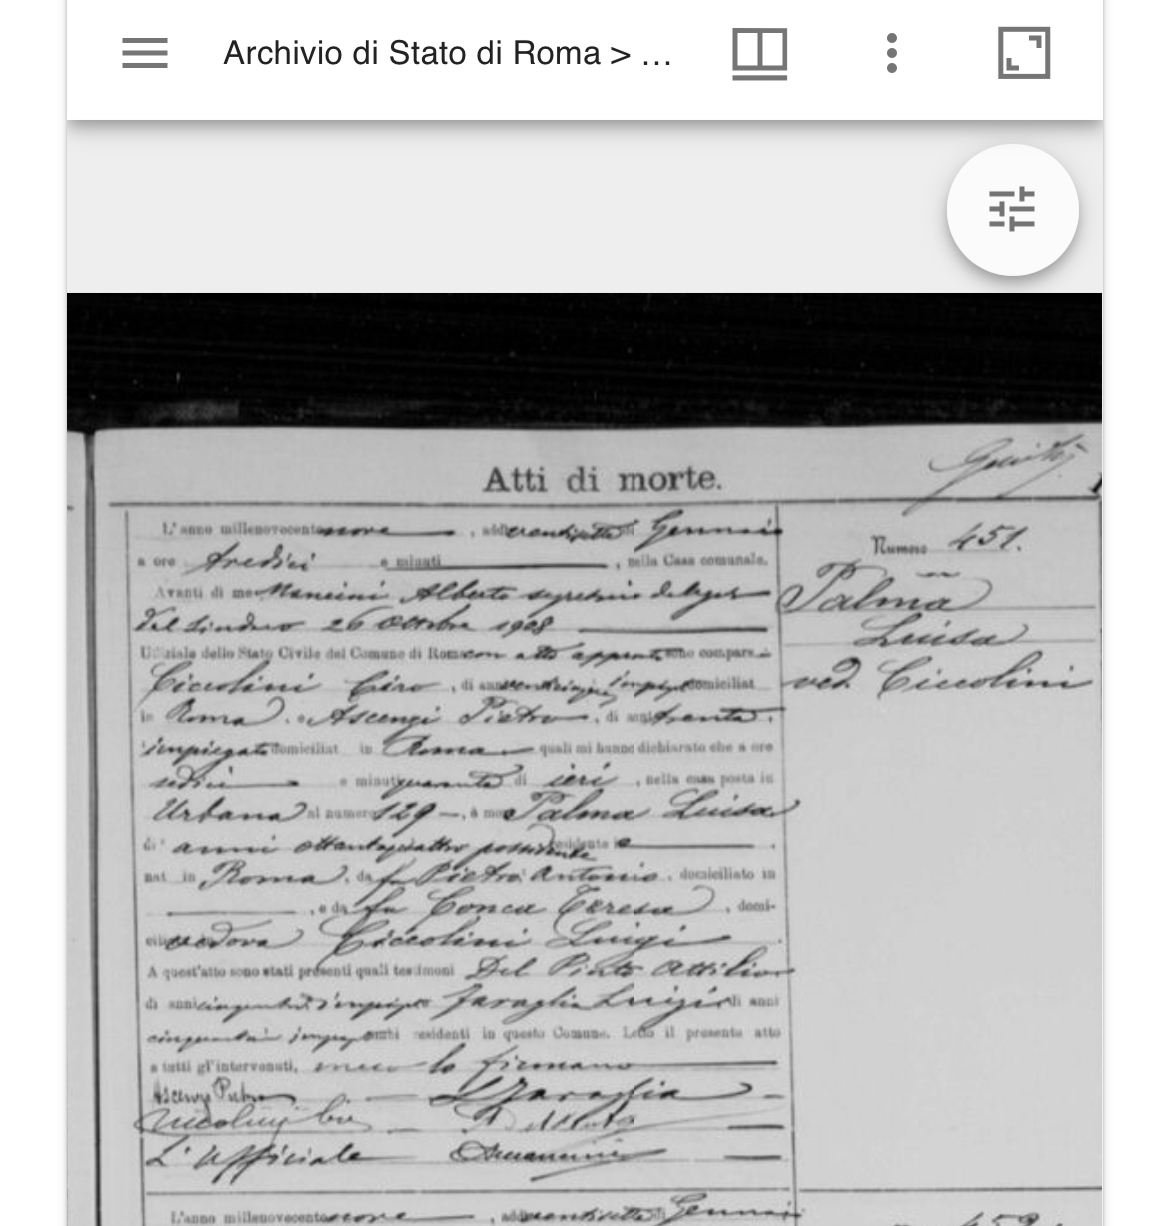 Archivio di Stato di Roma > ...
Atti di morte.
L'anno millenovecentonove, addi ventisette di Gennaio
a ore tredici e minuti, nella Casa comunale.
Avanti di me Mancini Alberto segretario delegato
dal sindaco 26 Ottobre 1908
Uffiziale dello Stato Civile del Comune di Roma con atto approvato sono compars
Ciccolini Ciro, di anni venticinque, domiciliat
in Roma, e Ascenzi Pietro, di anni trenta,
impiegato domiciliat in Roma quali mi hanno dichiarato che a ore
sedici e minuti quaranta di ieri, nella casa posta in
Urbana al numero 129, è mor Palma Luisa
di anni ottantaquattro possidente residente in
nat in Roma, da fu Pietro Antonio, domiciliato in
, e da fu Conca Teresa, domi-
vedova Ciccolini Luigi
A quest'atto sono stati presenti quali testimoni Del Pinto Attilio
di anni Faraglia Luigi di anni
ambi residenti in questo Comune. Letto il presente atto
a tutti gl'intervenuti, meco lo firmano
Ascenzi Pietro L Faraglia
L' Ufficiale AMancini
Numero 451.
Palma
Luisa
ved. Ciccolini
L'anno millenovecentonove, addi ventisette di Gennaio